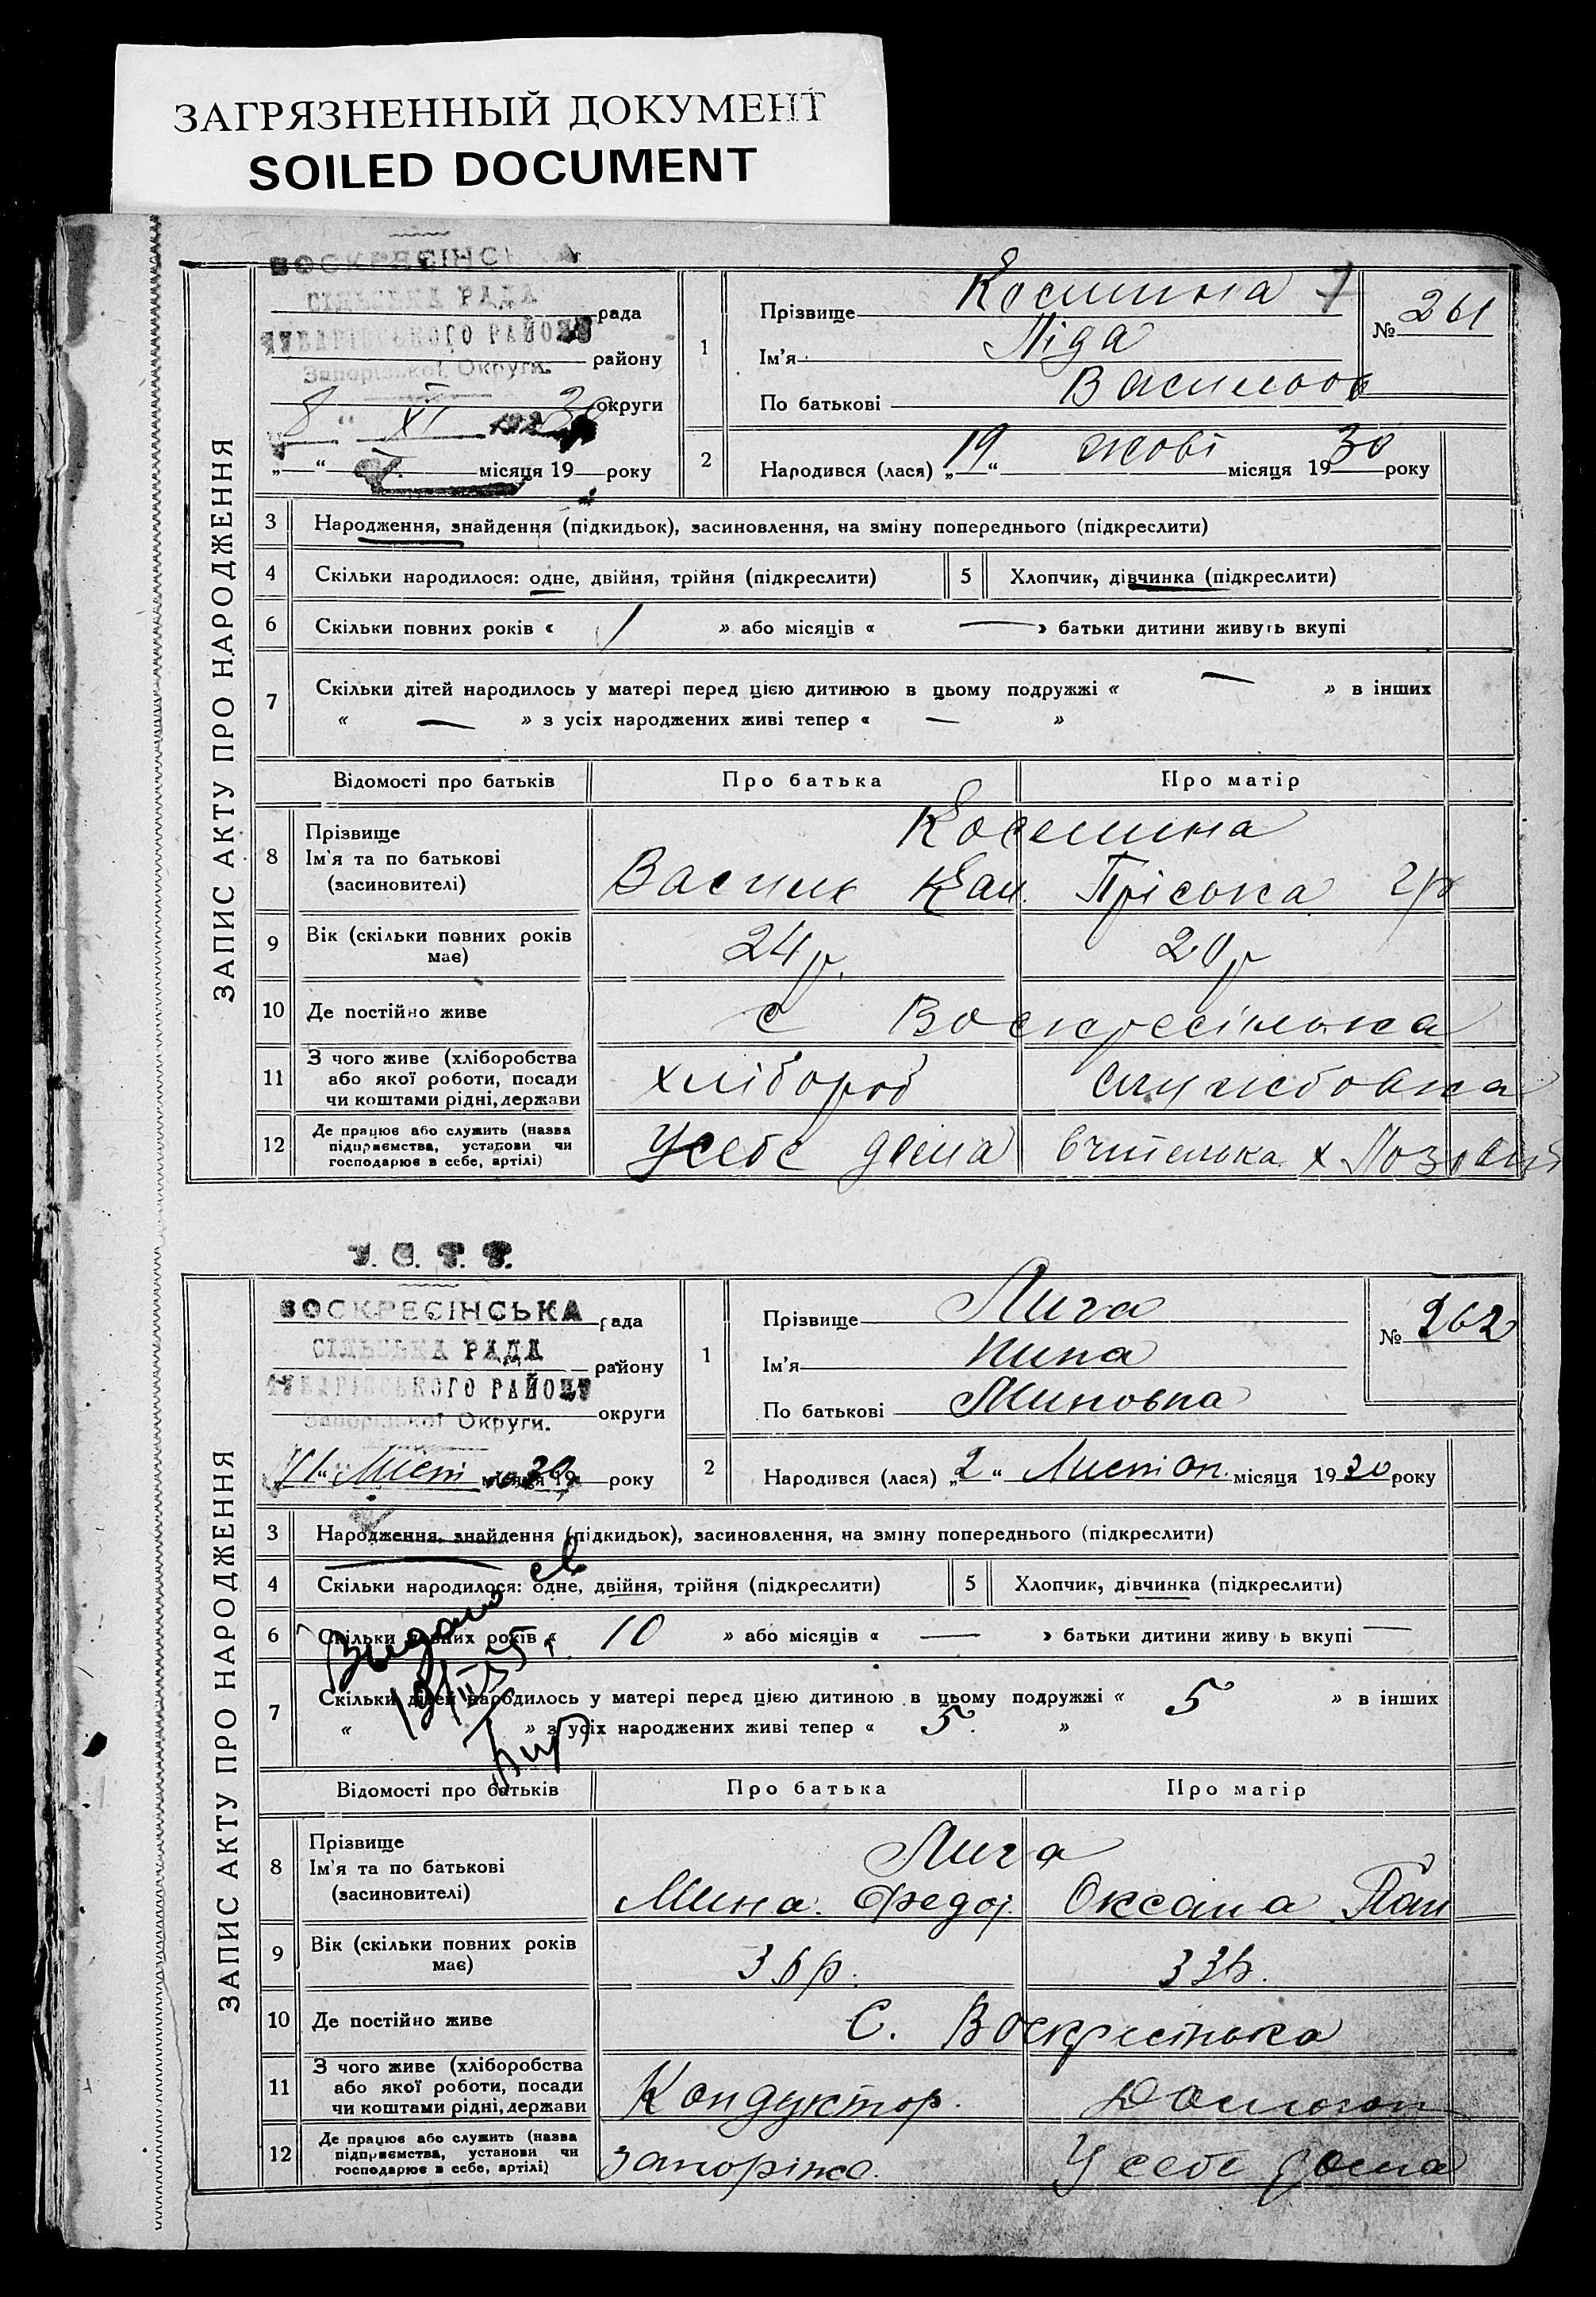 ЗАГРЯЗНЕННЫЙ ДОКУМЕНТ
SOILED DOCUMENT
ЗАПИС АКТУ ПРО НАРОДЖЕННЯ
ВОСКРЕСІНСЬКА
СІЛЬСЬКА РАДА рада
РАЙОНУ району
Запорізької Округи.
округи
8 " XI 30
„ “ місяця 19 року
1 Прізвище
Ім'я Ліда
По батькові
№ 261
2 Народився (лася) „19“ жовт місяця 1930 року
3 Народження, знайдення (підкидьок), засиновлення, на зміну попереднього (підкреслити)
4 Скільки народилося: одне, двійня, трійня (підкреслити) 5 Хлопчик, дівчинка (підкреслити)
6 Скільки повних років « 1 » або місяців « — » батьки дитини живуть вкупі
7 Скільки дітей народилось у матері перед цією дитиною в цьому подружжі « — » в інших
« — » з усіх народжених живі тепер « — »
Відомості про батьків Про батька Про матір
8 Прізвище
Ім'я та по батькові
(засиновителі)
Василь Пріська
9 Вік (скільки повних років має) 24 р. 20 р
10 Де постійно живе с Воскресінька
11 З чого живе (хліборобства або якої роботи, посади чи коштами рідні, держави хлібороб службовка
12 Де працює або служить (назва підприємства, установи чи господарює в себе, артілі) У себе дома вчителька х
У. С. Р. Р.
ЗАПИС АКТУ ПРО НАРОДЖЕННЯ
ВОСКРЕСІНСЬКА рада
СІЛЬСЬКА РАДА району
РАЙОНУ
Запорізької Округи. округи
Лист місяця 1930 року
1 Прізвище Лига
Ім'я Нина
По батькові Миновна
№ 262
2 Народився (лася) „2“ Листоп. місяця 1930 року
3 Народження, знайдення (підкидьок), засиновлення, на зміну попереднього (підкреслити)
4 Скільки народилося: одне, двійня, трійня (підкреслити) 5 Хлопчик, дівчинка (підкреслити)
6 Скільки повних років « 10 » або місяців « — » батьки дитини живуть вкупі —
7 Скільки дітей народилось у матері перед цією дитиною в цьому подружжі « 5 » в інших
« » з усіх народжених живі тепер « 5. »
Видано
Відомості про батьків Про батька Про матір
8 Прізвище
Ім'я та по батькові
(засиновителі)
Лига
Мина Федор. Оксана Пан
9 Вік (скільки повних років має) 36 р. 33 р.
10 Де постійно живе С. Воскресінька
11 З чого живе (хліборобства або якої роботи, посади чи коштами рідні, держави Кондуктор.
12 Де працює або служить (назва підприємства, установи чи господарює в себе, артілі) У себе дома